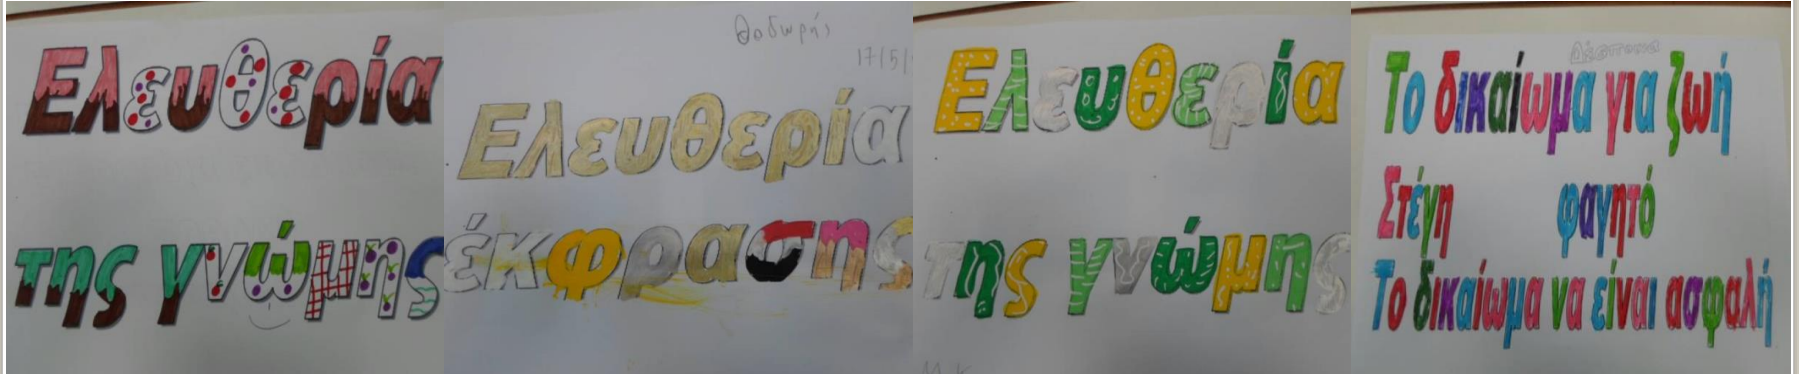 Ελευθερία
της γνώμης
Θοδωρής
17/5/
Ελευθερία
έκφρασης
Ελευθερία
της γνώμης
Δέσποινα
Το δικαίωμα για ζωή
Στέγη φαγητό
Το δικαίωμα να είναι ασφαλή